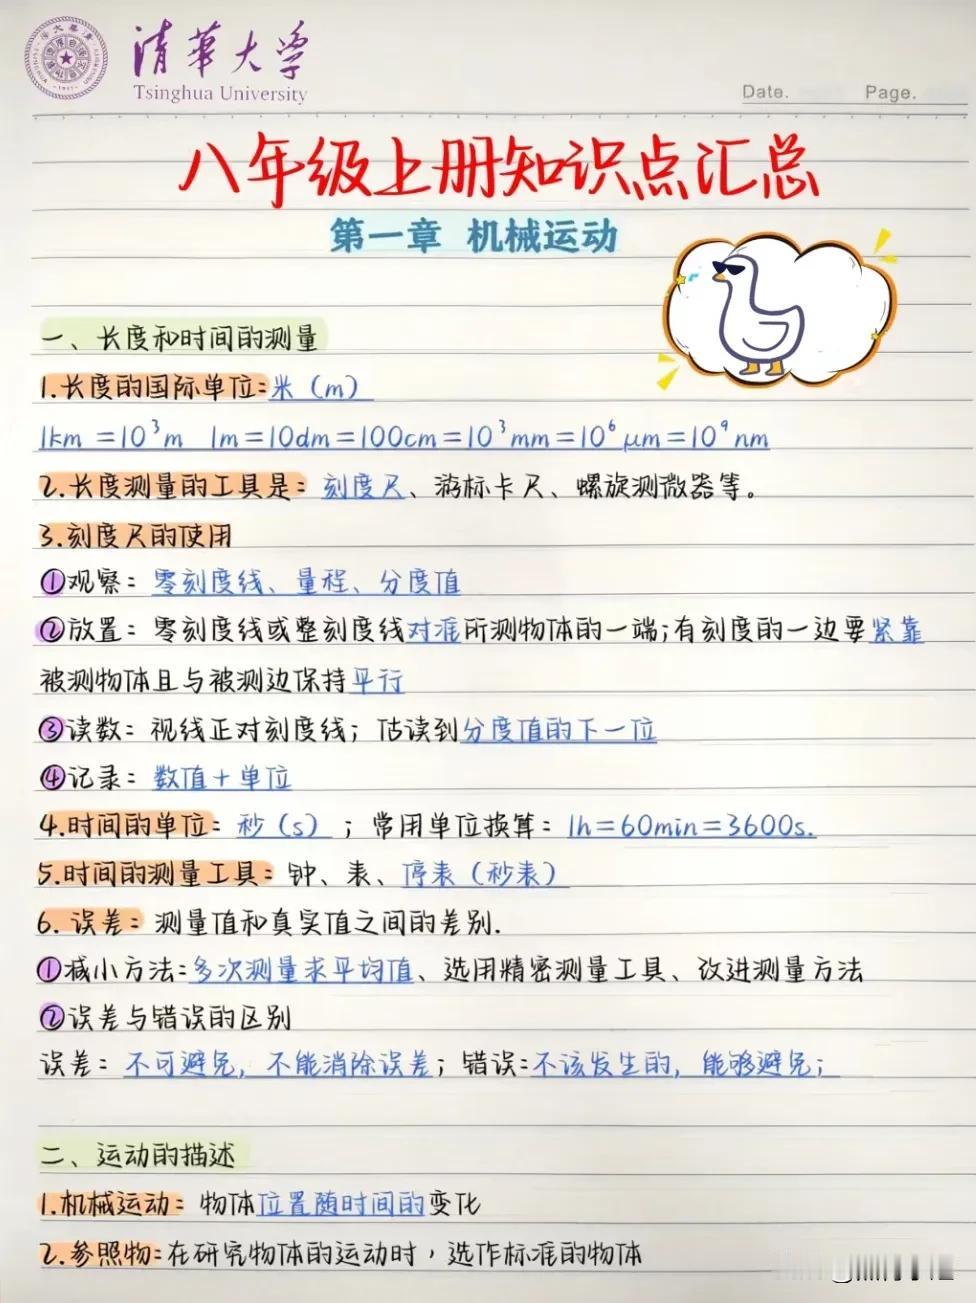 清華大学
Tsinghua University
Date. Page.
八年级上册知识点汇总
第一章 机械运动
一、长度和时间的测量
1.长度的国际单位:米(m)
1km=10³m 1m=10dm=100cm=10³mm=10⁶μm=10⁹nm
2.长度测量的工具是:刻度尺、游标卡尺、螺旋测微器等。
3.刻度尺的使用
①观察:零刻度线、量程、分度值
②放置:零刻度线或整刻度线对准所测物体的一端;有刻度的一边要紧靠
被测物体且与被测边保持平行
③读数:视线正对刻度线;估读到分度值的下一位
④记录:数值+单位
4.时间的单位:秒(s);常用单位换算:1h=60min=3600s.
5.时间的测量工具:钟、表、停表(秒表)
6.误差:测量值和真实值之间的差别.
①减小方法:多次测量求平均值、选用精密测量工具、改进测量方法
②误差与错误的区别
误差:不可避免,不能消除误差;错误:不该发生的,能够避免;
二、运动的描述
1.机械运动:物体位置随时间的变化
2.参照物:在研究物体的运动时,选作标准的物体